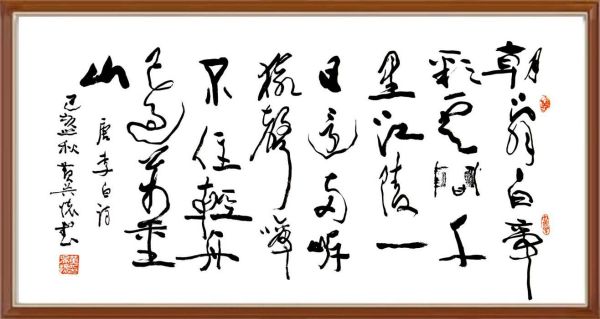 朝辭白帝
彩雲間千
里江陵一
日還兩岸
猿聲啼
不住輕舟
已過萬重
山
唐李白詩
秋